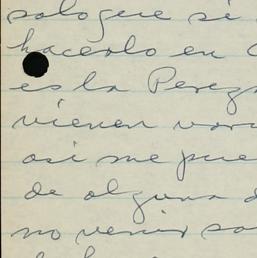 solo que si
hacerlo en
es la Perez
vienen var
asi me pue
de alguna
no venir